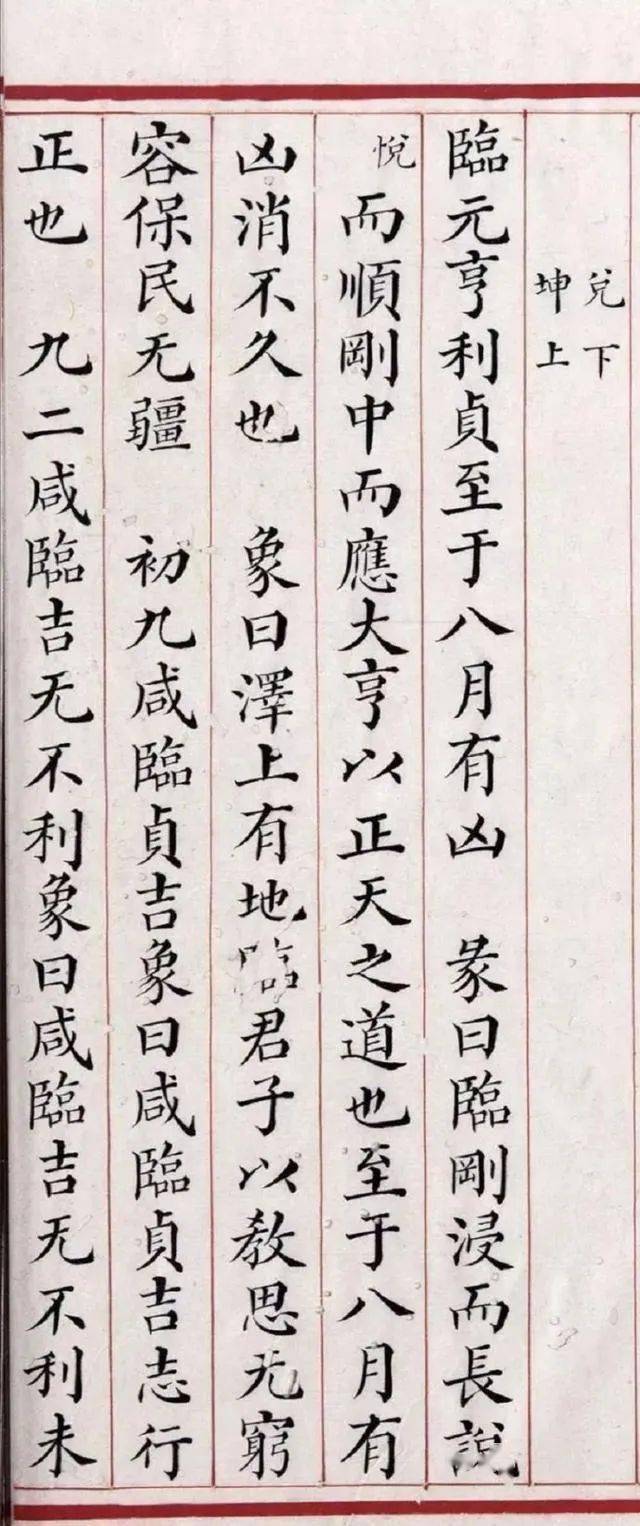 兌下
坤上
臨元亨利貞至于八月有凶 彖曰臨剛浸而長說
悅而順剛中而應大亨以正天之道也至于八月有
凶消不久也 象曰澤上有地臨君子以教思无窮
容保民无疆 初九咸臨貞吉象曰咸臨貞吉志行
正也 九二咸臨吉无不利象曰咸臨吉无不利未